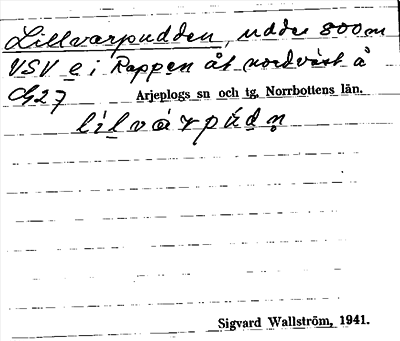 Lillvarpudden, udde 800 m
VSV e i Rappen åt nordväst å
G27 Arjeplogs sn och tg, Norrbottens län.
lílvàrpúdn̥
Sigvard Wallström, 1941.